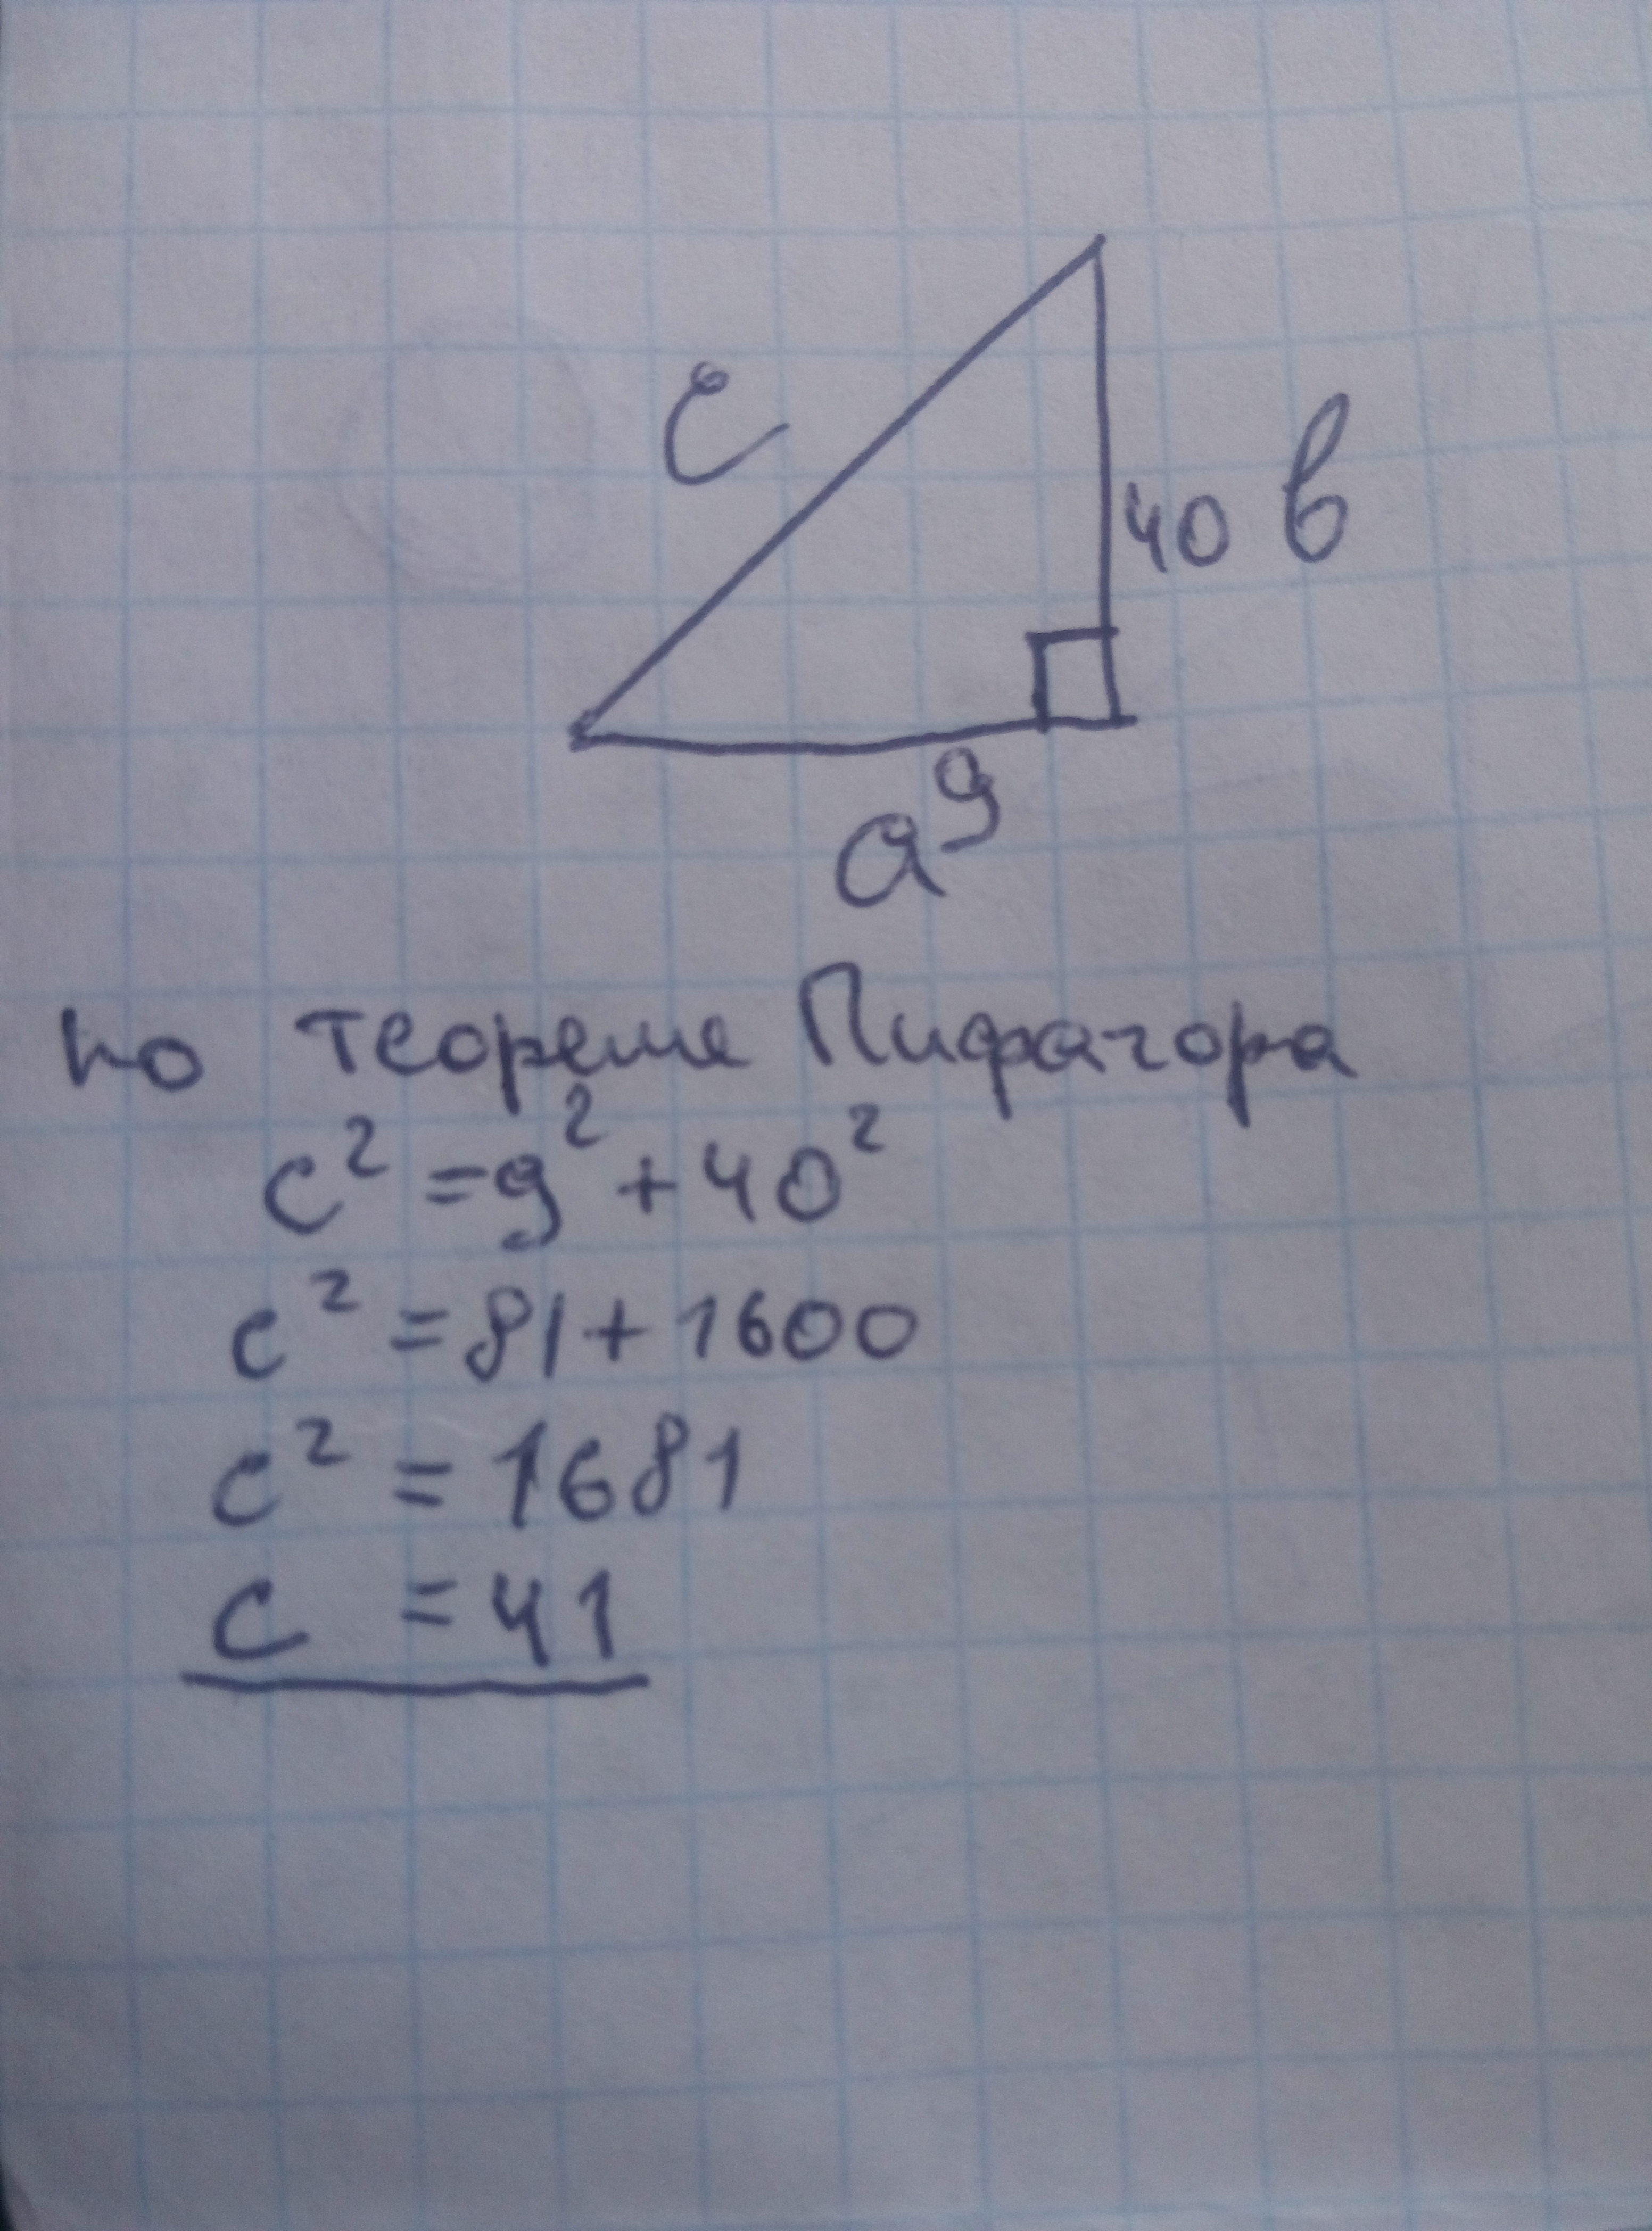 c
40 в
9
a
по теореме Пифагора
c² = 9² + 40²
c² = 81 + 1600
c² = 1681
c = 41